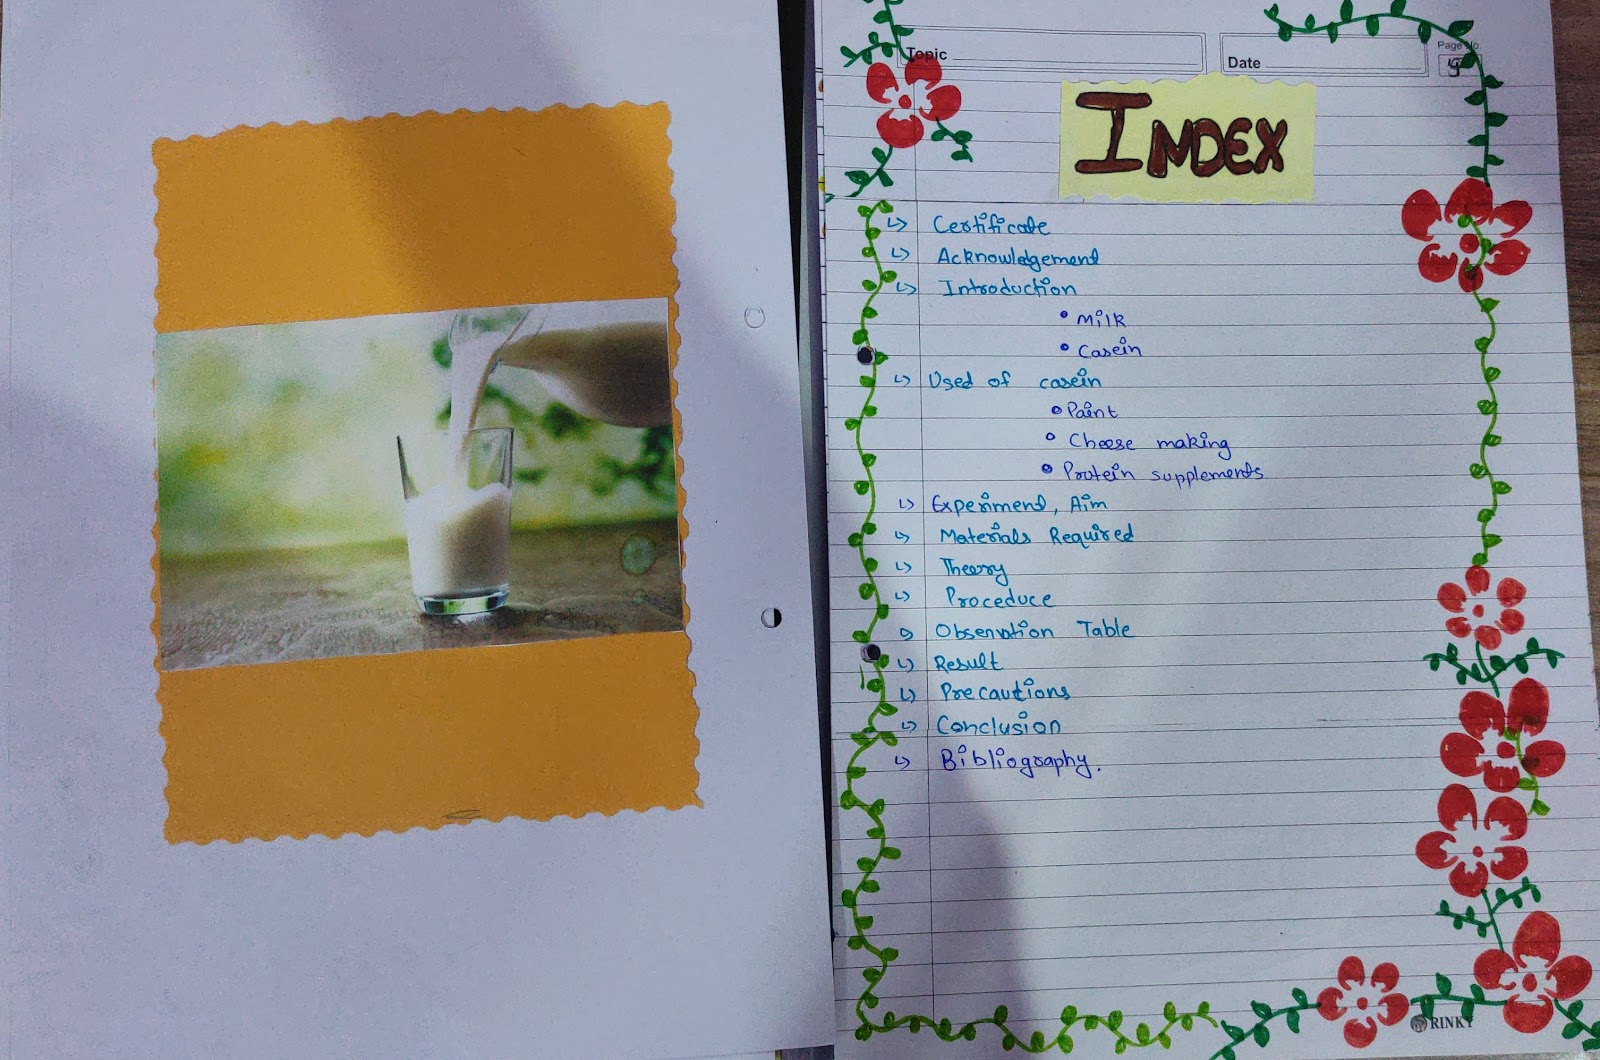 Topic
Date
Page No.
INDEX
Certificate
Acknowledgement
Introduction
Milk
Casein
Used of casein
Paint
Cheese making
Protein supplements
Experiment, Aim
Materials Required
Theory
Proceduce
Observation Table
Result
Precautions
Conclusion
Bibliography.
RINKY